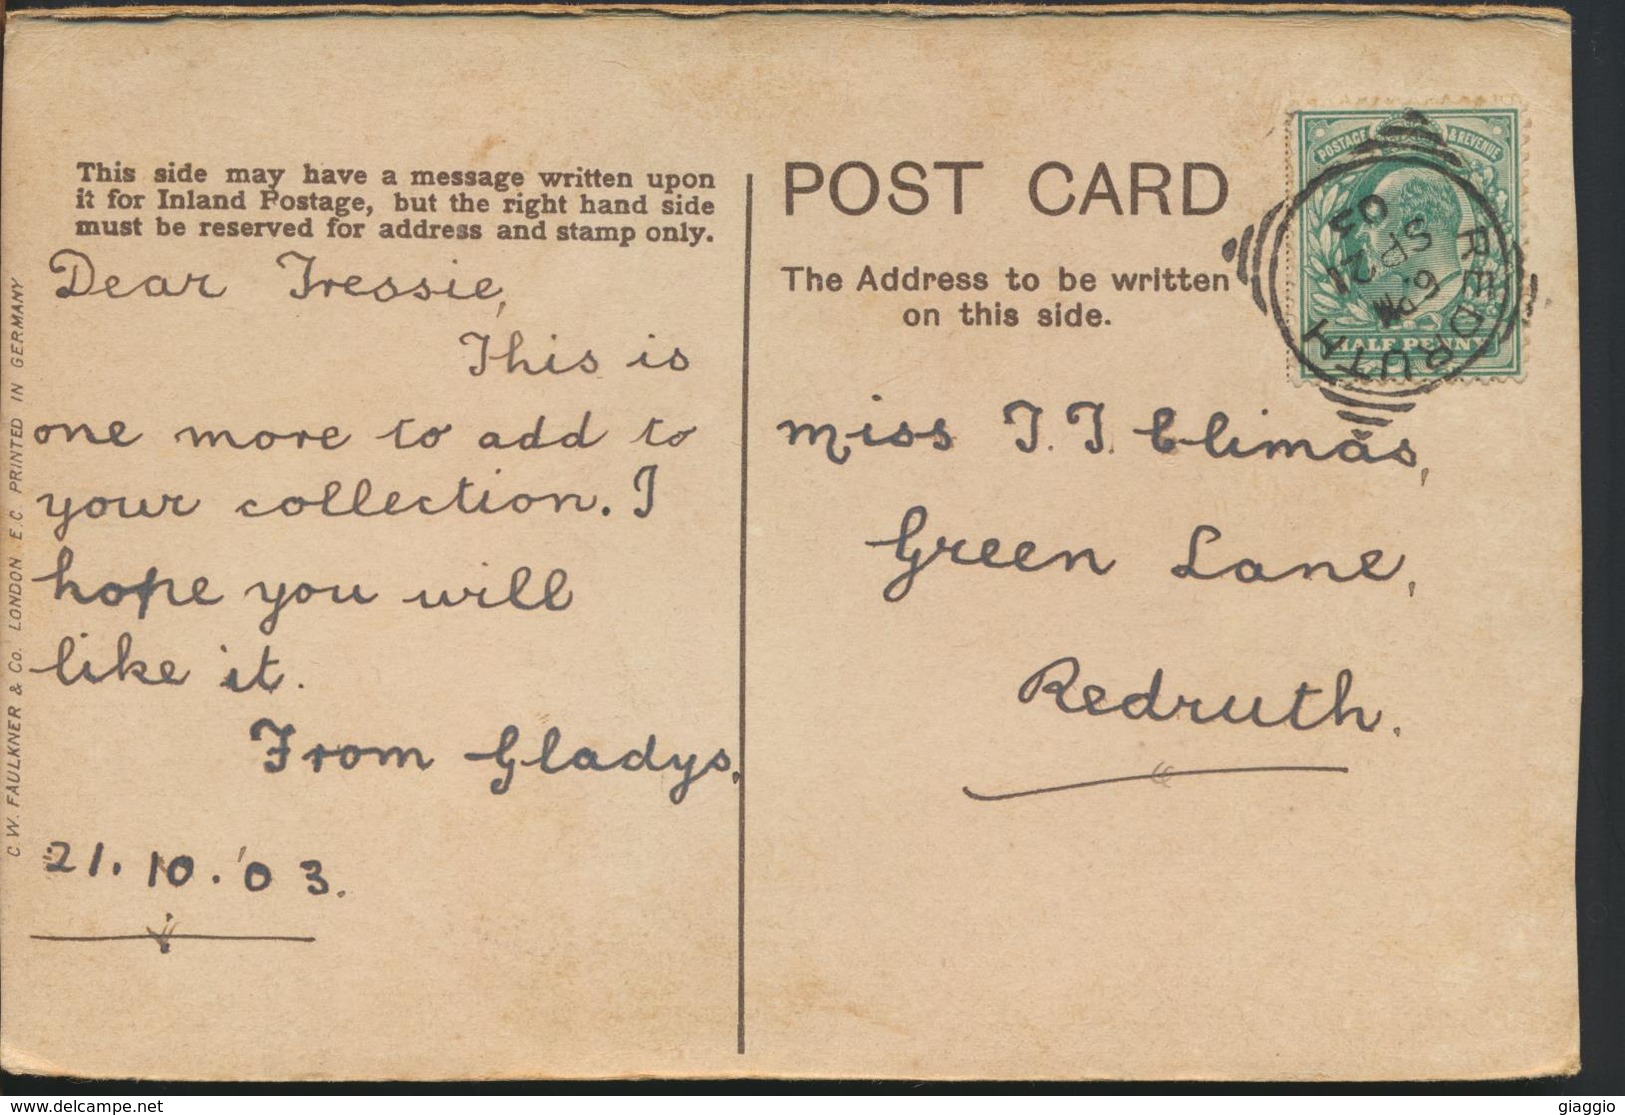 This side may have a message written upon
it for Inland Postage, but the right hand side
must be reserved for address and stamp only.
Dear Tressie,
This is
one more to add to
your collection. I
hope you will
like it.
From Gladys.
21.10.'03.
C.W. FAULKNER & Co. LONDON E.C. PRINTED IN GERMANY
POST CARD
The Address to be written
on this side.
POSTAGE & REVENUE
HALF PENNY
REDRUTH
6. PM
SP 21
03
Miss T. T. Climas,
Green Lane,
Redruth.
www.delcampe.net
giaggio